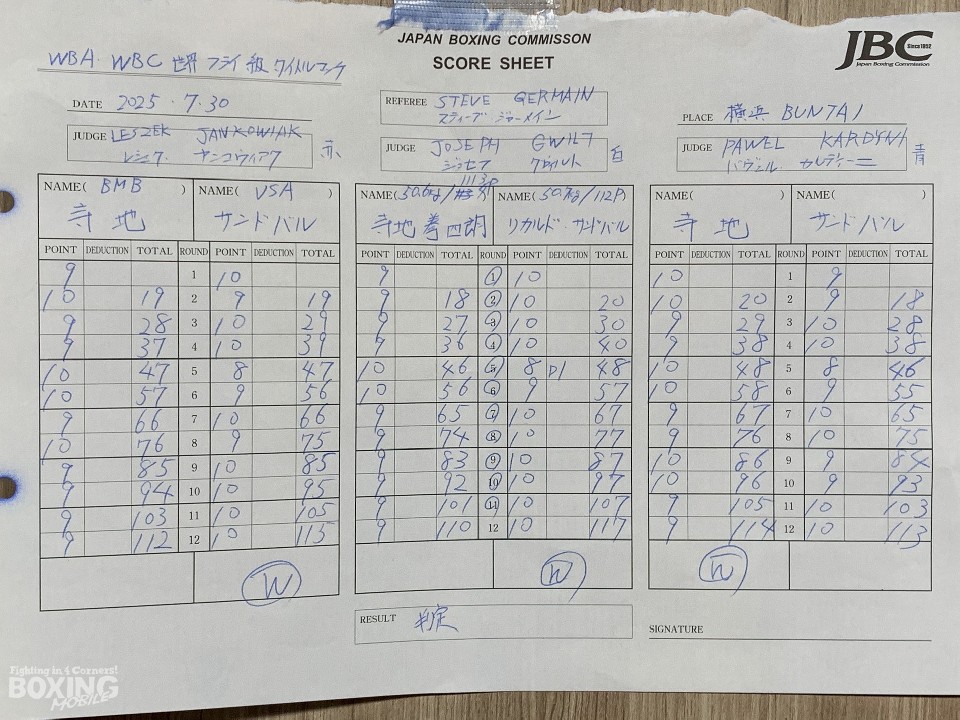 JAPAN BOXING COMMISSON
SCORE SHEET
JBC Since1952
Japan Boxing Commission
WBA. WBC 世界 フライ級 タイトルマッチ
DATE 2025.7.30
REFEREE STEVE GERMAIN
スティーブ ジャーメイン
PLACE 横浜 BUNTAI
JUDGE LESZEK JANKOWIAK 赤
レシェク ヤンコウィアク
JUDGE JOSEPH GWILT 白
ジョセフ グウィルト
JUDGE PAWEL KARDYNI 青
パヴェル カルディーニ
NAME( BMB ) NAME( USA )
寺地 サンドバル
NAME( 50.6kg/ NAME( 50.7kg/112P)
寺地 拳四朗 リカルド・サンドバル
NAME( ) NAME( )
寺地 サンドバル
POINT DEDUCTION TOTAL ROUND POINT DEDUCTION TOTAL
9 1 10
10 19 2 9 19
9 28 3 10 29
9 37 4 10 39
10 47 5 8 47
10 57 6 9 56
9 66 7 10 66
10 76 8 9 75
9 85 9 10 85
9 94 10 10 95
9 103 11 10 105
9 112 12 10 115
W
POINT DEDUCTION TOTAL ROUND POINT DEDUCTION TOTAL
9 1 10
9 18 2 10 20
9 27 3 10 30
9 36 4 10 40
10 46 5 8 D/ 48
10 56 6 9 57
9 65 7 10 67
9 74 8 10 77
9 83 9 10 87
9 92 10 10 97
9 101 11 10 107
9 110 12 10 117
W
POINT DEDUCTION TOTAL ROUND POINT DEDUCTION TOTAL
10 1 9
10 20 2 9 18
9 29 3 10 28
9 38 4 10 38
10 48 5 8 46
10 58 6 9 55
9 67 7 10 65
9 76 8 10 75
10 86 9 9 84
10 96 10 9 93
9 105 11 10 103
9 114 12 10 113
W
RESULT 判定
SIGNATURE
Fighting in 4 Corners!
BOXING
MOBILE